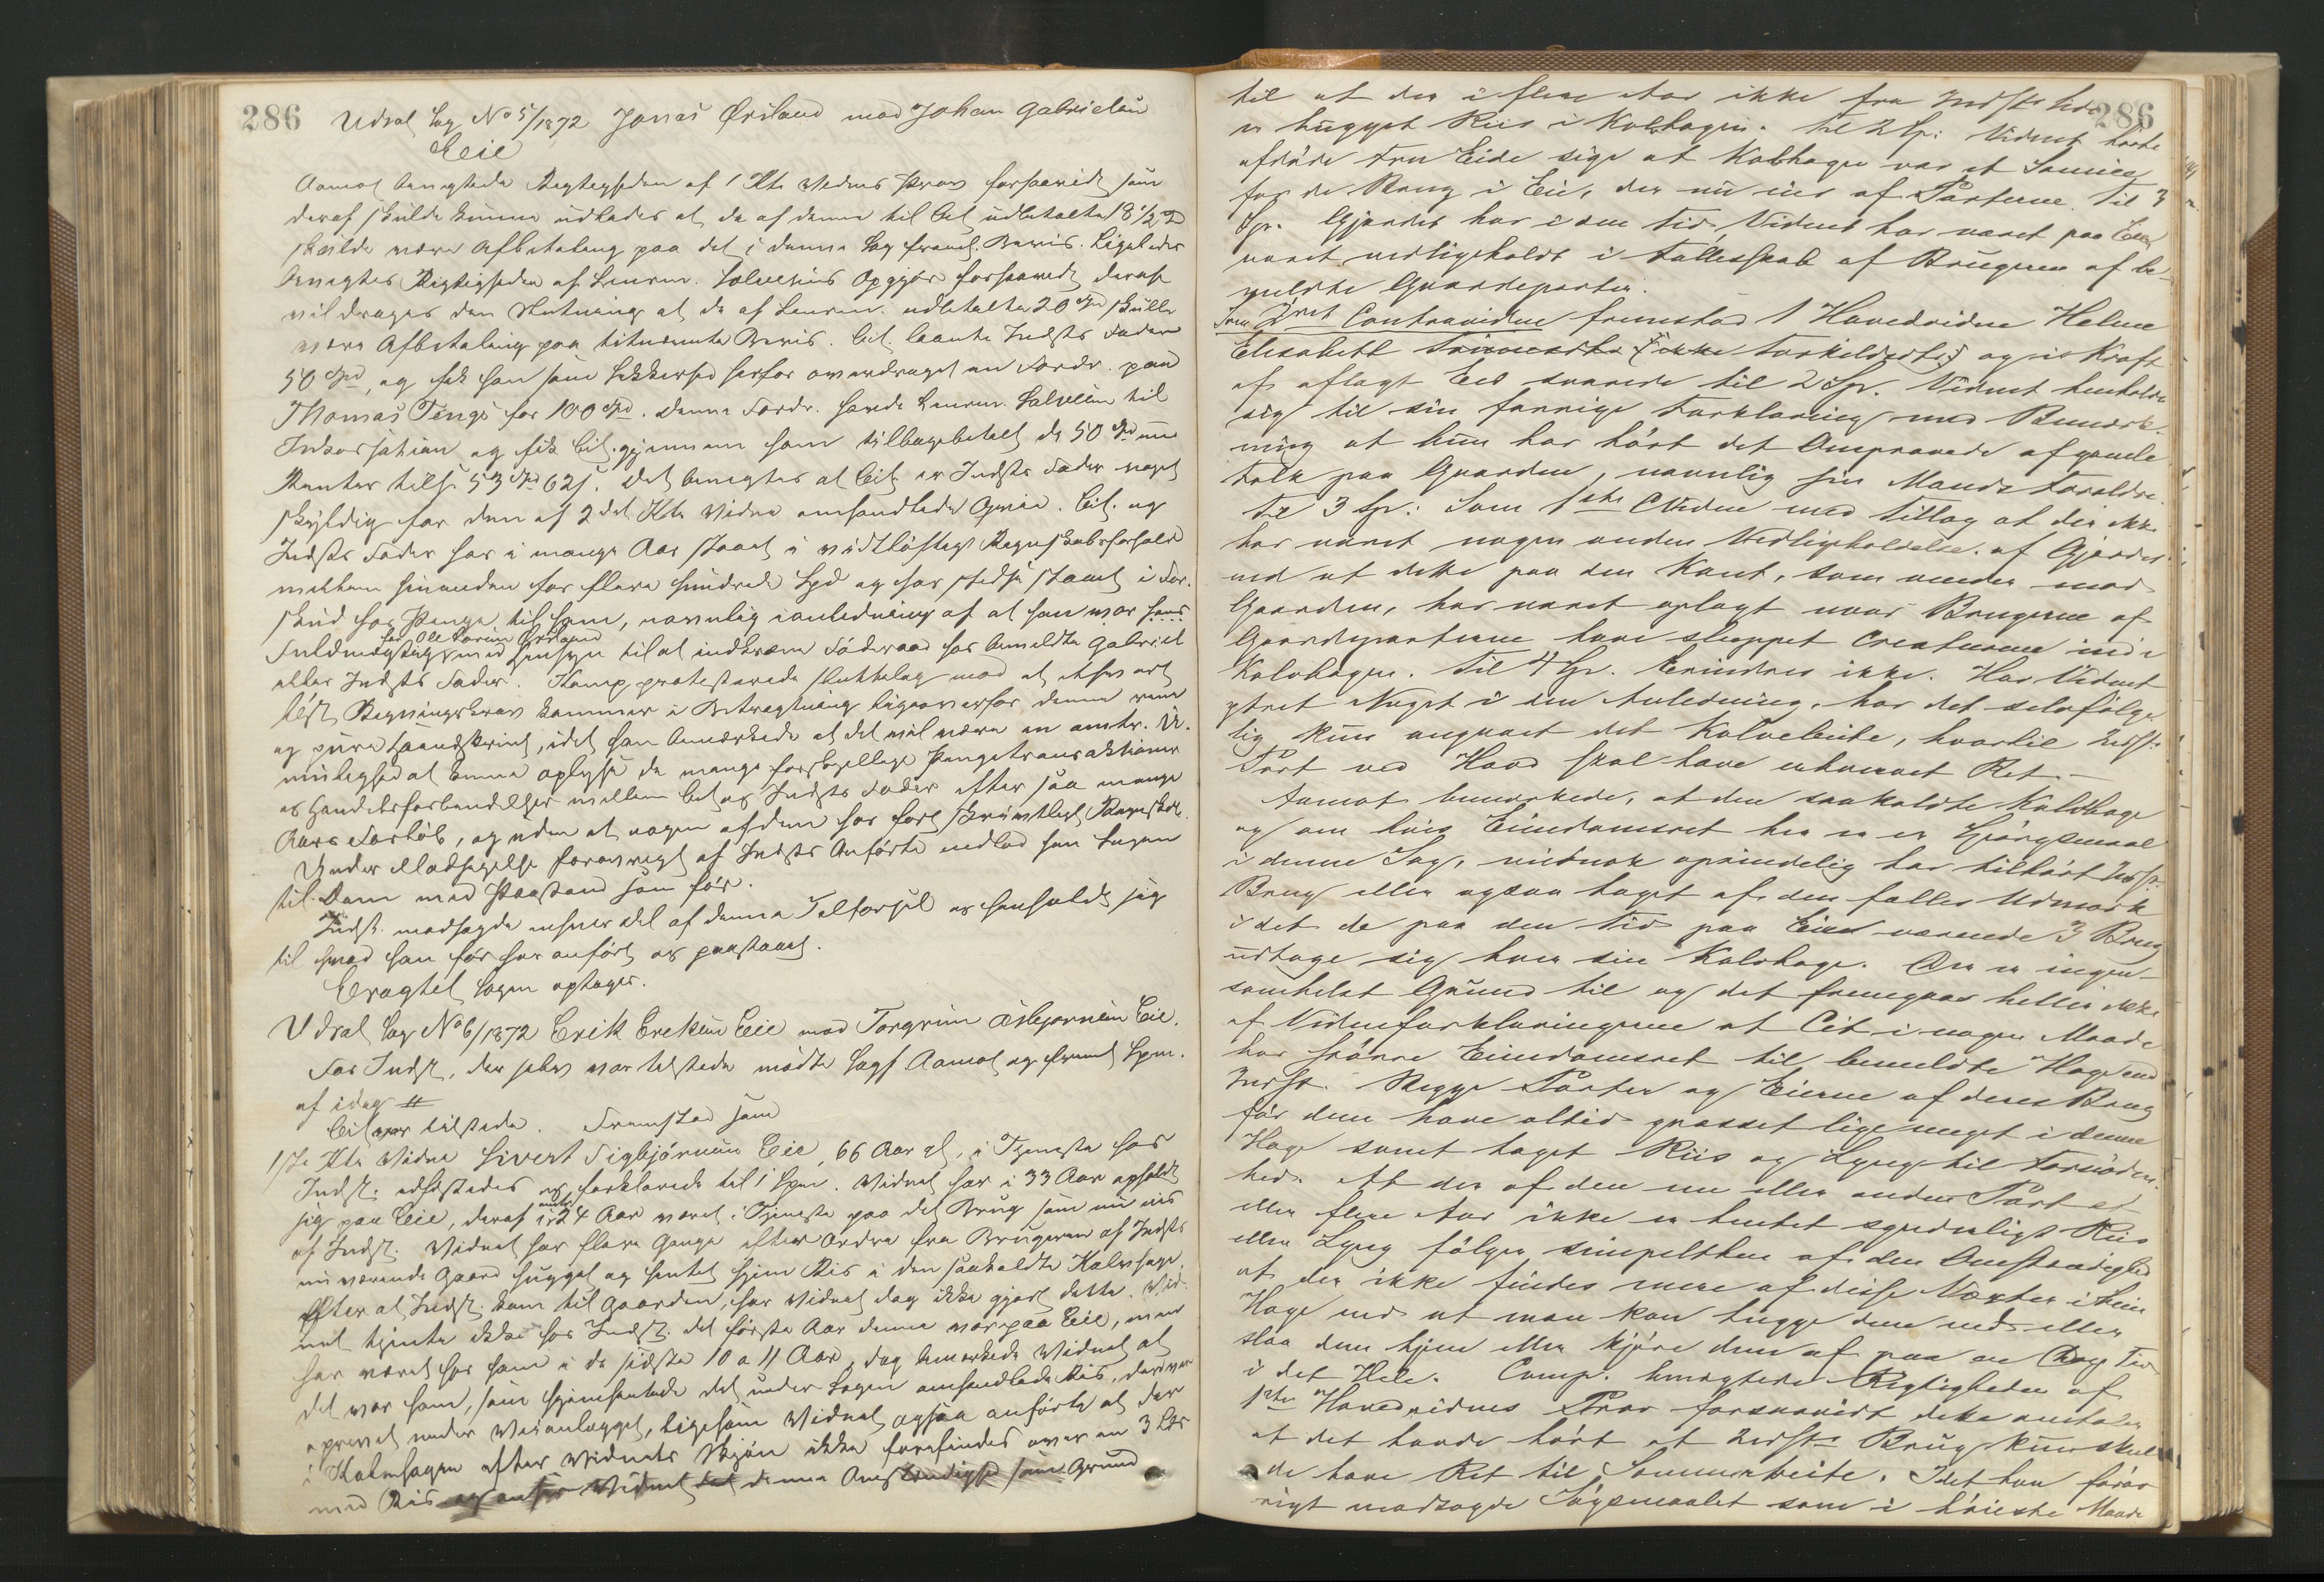 286
Udsat Sag No 5/1872 Jonas Ørsland mod Johan Gabrielsen
Eeie
Aamot benegtede Rigtigheden af 1 Kts Vidnes Prov forsaavidt som
deraf skulde kunne udledes at de af denne til Cit udbetalte 18 1/2 Spd
skulde være Afbetaling paa det i denne Sag freml. Bevis. Ligeledes
benegtes Rigtigheden af Lensm. Salvesens Opgjør forsaavidt deraf
vil drages den Slutning at de af Lensm. udbetalte 20 Spd skulle
være Afbetaling paa bemeldte Bevis. Cit. laante Indsts Fader
50 Spd, og fik han som Sikkerhed herfor overdraget en Fordr. paa
Thomas Tengs for 100 Spd. Denne Fordr. havde Lensm. Salvesen til
Inkassation og fik Cit. gjennem ham tilbagebetalt de 50 Spd med
Renter tils. 53 Spd 62 s. Det benegtes at Cit. er Indsts Fader noget
skyldig for den af 2det Kts Vidne omhandlede Qvie. Cit. og
Indsts Fader har i mange Aar staaet i vidtløftige Regnskabsforhold
mellem hinanden for flere hundrede Spd og har stedse staaet i For-
skud for Penge til ham, navnlig i anledning af at han var hans
for Ole Larsen Ørsland
Fuldmægtig med Hensyn til at indkræve Føderaad hos bemeldte Gabriel
eller Indsts Fader. Komp. protesterede sluttelig mod at ethvert
løst Regningskrav kommer i Betragtning ligeoverfor denne rene
og pure Haandskrivt, idet han bemærkede at det vil være en omtr. U-
mulighed at kunne oplyse de mange forskjellige Pengetransaktioner
og Handelsforbindelser mellem Cit og Indsts Fader efter saa mange
Aars Forløb, og uden at nogen af dem har ført skriftligt Regnskab.
Under Modsigelse forøvrigt af Indsts Anførte indlod han Sagen
til Dom med Paastand som før.
Indst. modsagde ethvert del af denne Tilførsel og henholdt sig
til hvad han før har anført og paastaaet.
Eragtet Sagen optages.
Udsat Sag No 6/1872 Erik Ereksen Eeie mod Torgrim Asbjørnsen Eeie.
For Indst, der selv var tilstede mødte Sagf Aamot og freml. Spm.
af idag #
Cit var tilstede. Fremstod som
1ste Kts Vidne Sivert Sigbjørnsen Eeie, 66 Aar gl, i Tjeneste hos
Indst. edfæstedes og forklarede til 1 Spm. Vidnet har i 33 Aar opholdt
sig paa Eeie, deraf i 24 Aar været i Tjeneste paa det Brug som nu eies
af Indst. Vidnet har flere Gange efter Ordre fra Brugeren af Indsts
nuværende Gaard hugget og hentet hjem Ris i den saakaldte Kalvhage.
Efter at Indst. kom til Gaarden, har Vidnet dog ikke gjort dette. Vid-
net tjente ikke hos Indst. det første Aar denne var paa Eeie, men
har været hos ham i de sidste 10 a 11 Aar, dog bemærkede Vidnet at
det var ham, som hjemhentede det under Sagen omhandlede Ris, der var
oprevet under Veianlægget, ligesom Vidnet ogsaa anførte at der
i Kalvhagen efter Vidnets Skjøn ikke forefindes over en 3 Læs
med Ris og anser Vidnet denne Omstændighed som Grund
286
til at der i flere Aar ikke fra Indsts Side
er hugget Riis i Kalvhagen. Til 2 Sp: Vidnet hørte
afdøde Tru Eide sige at Kalvhagen var et Sameie
for de Brug i Eie, der nu eies af Parterne. Til 3
Sp. Gjærdet har i den Tid Vidnet har været paa Eeie,
været vedligeholdt i Fællesskab af Brugerne af be-
meldte Gaardeparter.
Som 2det Contravidne fremstod 1 Hovedvidne Helene
Elisabeth (ikke Torkildsdtr) og i Kraft
af aflagt Eed svarede til 2 Sp. Vidnet henholdt
sig til sin forrige Forklaring med Bemærk-
ning at hun har hørt det Omprovede af gamle
Folk paa Gaarden, navnlig sin Mands Forældre.
Til 3 Sp: Som 1ste CVidne med Tillæg at der ikke
har været nogen anden Vedligeholdelse af Gjærdet
end at dette paa den Kant, som vender mod
Gaarden, har været oplagt naar Brugerne af
Gaardeparterne have sluppet Creaturene ind i
Kalvhagen. Til 4 Sp. Erindres ikke. Har Vidnet
ytret Noget i den Anledning, har det selvfølge-
lig kun angaaet det Kalvebeite, hvortil Indst:
Part ved Hævd skal have erhvervet Ret.
Aamot bemærkede, at den saakaldte Kalvhage
og om hvis Eiendomsret her er Spørgsmaal
i denne Sag, vistnok oprindelig har tilhørt Indst:
Brug eller ogsaa taget af den fælles Udmark
i det de paa den Tid paa Eeie værende 3 Brug
udtoge sig hver sin Kalvhage. Der er ingen-
somhelst Grund til og det fremgaar heller ikke
af Vidneforklaringerne at Cit i nogen Maade
har større Eiendomsret til bemeldte Hage end
Indst. Begge Parter og Eierne af deres Brug
før dem have altid græsset lige meget i denne
Hage samt taget Riis og Lyng til Fornøden-
hed. At der af den ene eller anden Part et
eller flere Aar ikke er hentet synderligt Riis
eller Lyng følger simpelthen af den Omstændighed
at der ikke findes mere af disse Væxter i hiin
Hage end at man kan hugge dem ned eller
slaa dem hjem eller kjøre dem af paa en Dags Tid
i det Hele. Comp. benegtede Rigtigheden af
1ste Hovedvidnes Prov forsaavidt dette omtaler
at det havde hørt at Indsts Brug kun skul-
de have Ret til Sommerbeite. Idet han forøv-
rigt modsagde Søgsmaalet som i høieste Maade